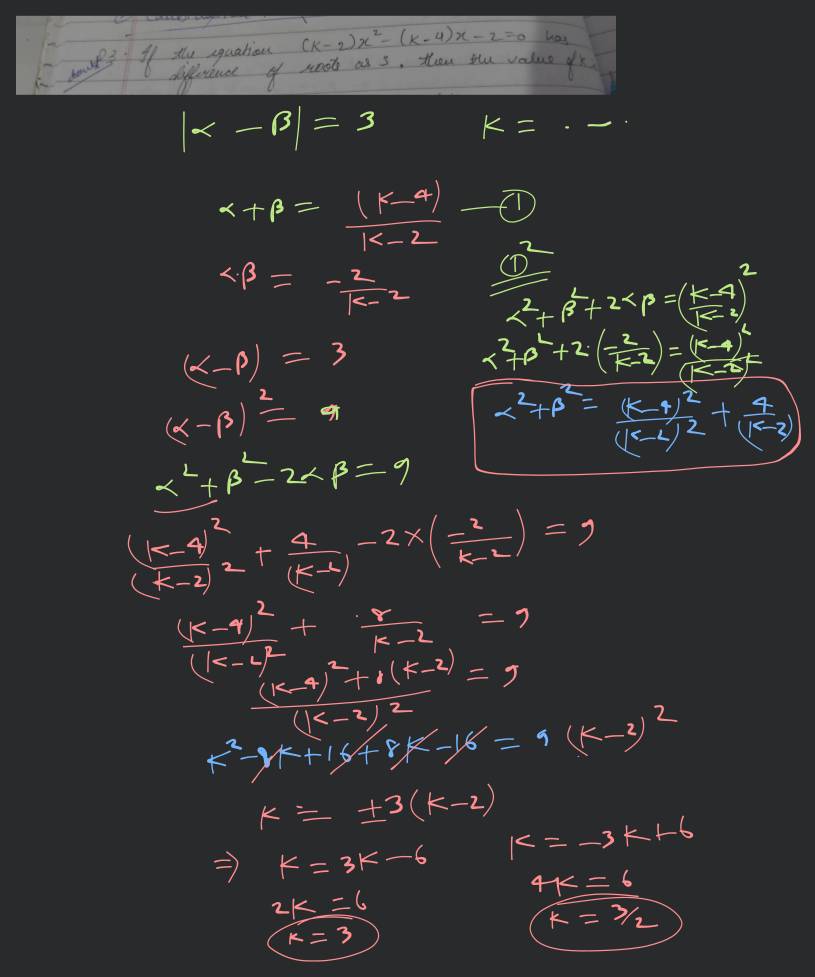 If the equation (K-2)x² - (K-4)x - 2 = 0 has
difference of roots as 3, then the value of K
|α - β| = 3 K = . - .
α + β = (K-4)/(K-2) — ①
α·β = -2/(K-2)
①²
α² + β² + 2αβ = ((K-4)/(K-2))²
α² + β² + 2·(-2/(K-2)) = (K-4)²/(K-2)²
α² + β² = (K-4)²/(K-2)² + 4/(K-2)
(α - β) = 3
(α - β)² = 9
α² + β² - 2αβ = 9
(K-4)²/(K-2)² + 4/(K-2) - 2×(-2/(K-2)) = 9
(K-4)²/(K-2)² + 8/(K-2) = 9
((K-4)² + 8(K-2))/(K-2)² = 9
K² - 8K + 16 + 8K - 16 = 9 (K-2)²
K = ±3(K-2)
⇒ K = 3K - 6
2K = 6
K = 3
K = -3K + 6
4K = 6
K = 3/2